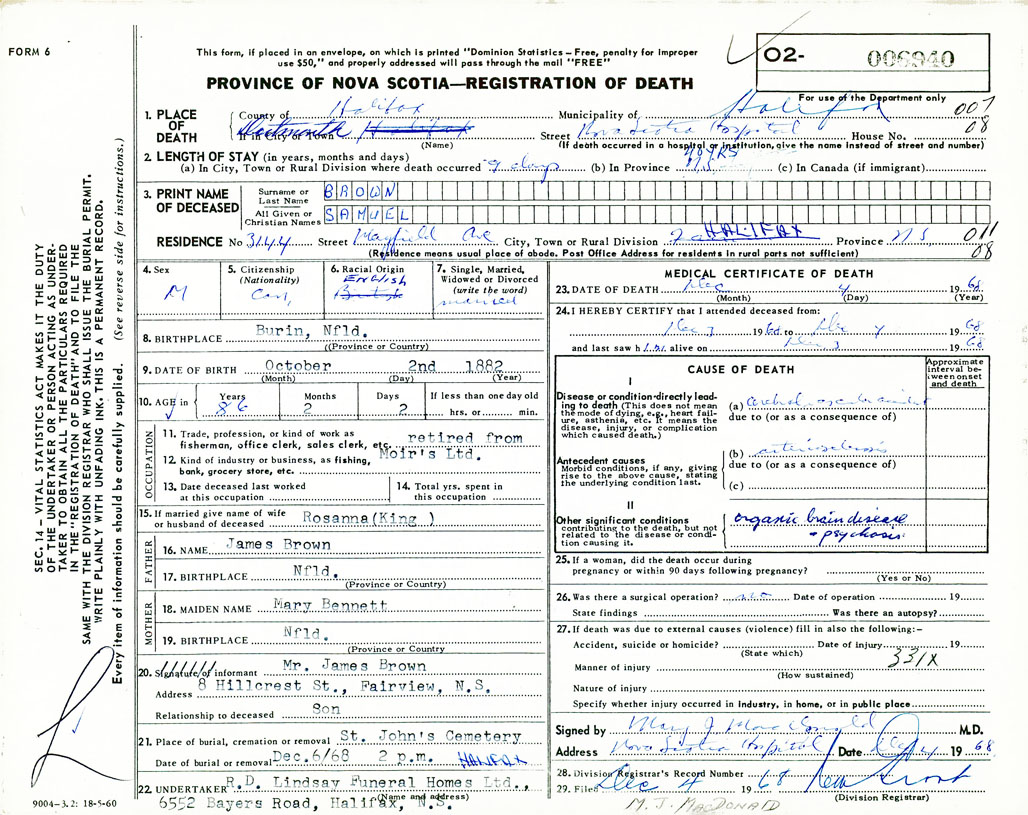 FORM 6
This form, if placed in an envelope, on which is printed "Dominion Statistics – Free, penalty for improper
use $50," and properly addressed will pass through the mail "FREE"
PROVINCE OF NOVA SCOTIA—REGISTRATION OF DEATH
O2- 006940
For use of the Department only
007
08
1. PLACE OF DEATH
County of Halifax Municipality of Halifax
If in City or Town Dartmouth Halifax Street Nova Scotia Hospital House No.
(Name) (If death occurred in a hospital or institution, give the name instead of street and number)
2. LENGTH OF STAY (in years, months and days) 40 YRS
(a) In City, Town or Rural Division where death occurred 9 days (b) In Province (c) In Canada (if immigrant)
3. PRINT NAME OF DECEASED
Surname or Last Name BROWN
All Given or Christian Names SAMUEL
RESIDENCE No 3144 Street Mayfield Ave City, Town or Rural Division HALIFAX Province NS 011
08
(Residence means usual place of abode. Post Office Address for residents in rural parts not sufficient)
4. Sex M
5. Citizenship (Nationality) Can,
6. Racial Origin English British
7. Single, Married, Widowed or Divorced (write the word) married
8. BIRTHPLACE Burin, Nfld.
((Province or Country)
9. DATE OF BIRTH October 2nd 1882
(Month) (Day) (Year)
10. AGE in Years 86 Months 2 Days 2 If less than one day old hrs. or min.
OCCUPATION
11. Trade, profession, or kind of work as fisherman, office clerk, sales clerk, etc. retired from
12. Kind of industry or business, as fishing, bank, grocery store, etc. Moir's Ltd.
13. Date deceased last worked at this occupation
14. Total yrs. spent in this occupation
15. If married give name of wife or husband of deceased Rosanna(King )
FATHER
16. NAME James Brown
17. BIRTHPLACE Nfld.
(Province or Country)
MOTHER
18. MAIDEN NAME Mary Bennett
19. BIRTHPLACE Nfld.
(Province or Country
20. Signature of informant Mr. James Brown
Address 8 Hillcrest St., Fairview, N.S.
Relationship to deceased Son
21. Place of burial, cremation or removal St. John's Cemetery
Date of burial or removal Dec.6/68 2 p.m. HALIFAX
22. UNDERTAKER R.D. Lindsay Funeral Homes Ltd.,
(Name and address)
6552 Bayers Road, Halifax, N.S.
9004-3.2: 18-5-60
MEDICAL CERTIFICATE OF DEATH
23. DATE OF DEATH Dec 4 19 68
(Month) (Day) (Year)
24. I HEREBY CERTIFY that I attended deceased from:
Dec 3 19 68 to Dec 4 19 68
and last saw him alive on Dec 3 19 68
CAUSE OF DEATH
Approximate interval between onset and death
I
Disease or condition directly leading to death (This does not mean the mode of dying, e.g., heart failure, asthenia, etc. It means the disease, injury, or complication which caused death.)
(a) Cerebral vascular accident
due to (or as a consequence of)
Antecedent causes
Morbid conditions, if any, giving rise to the above cause, stating the underlying condition last.
(b) arteriosclerosis
due to (or as a consequence of)
(c)
II
Other significant conditions contributing to the death, but not related to the disease or condition causing it.
organic brain disease
+ psychosis
25. If a woman, did the death occur during pregnancy or within 90 days following pregnancy?
(Yes or No)
26. Was there a surgical operation? no Date of operation 19
State findings Was there an autopsy?
27. If death was due to external causes (violence) fill in also the following:–
Accident, suicide or homicide? Date of injury 19
(State which) 331X
Manner of injury
(How sustained)
Nature of injury
Specify whether injury occurred in industry, in home, or in public place
Signed by Mary J MacDonald M.D.
Address Nova Scotia Hospital Date Dec 4 19 68
28. Division Registrar's Record Number
29. Filed Dec 4 19 68
(Division Registrar)
M. J. MACDONALD
SEC. 14 – VITAL STATISTICS ACT MAKES IT THE DUTY
OF THE UNDERTAKER OR PERSON ACTING AS UNDER-
TAKER TO OBTAIN ALL THE PARTICULARS REQUIRED
IN THE "REGISTRATION OF DEATH" AND TO FILE THE
SAME WITH THE DIVISION REGISTRAR WHO SHALL ISSUE THE BURIAL PERMIT.
WRITE PLAINLY WITH UNFADING INK. THIS IS A PERMANENT RECORD.
Every item of information should be carefully supplied. (See reverse side for instructions.)